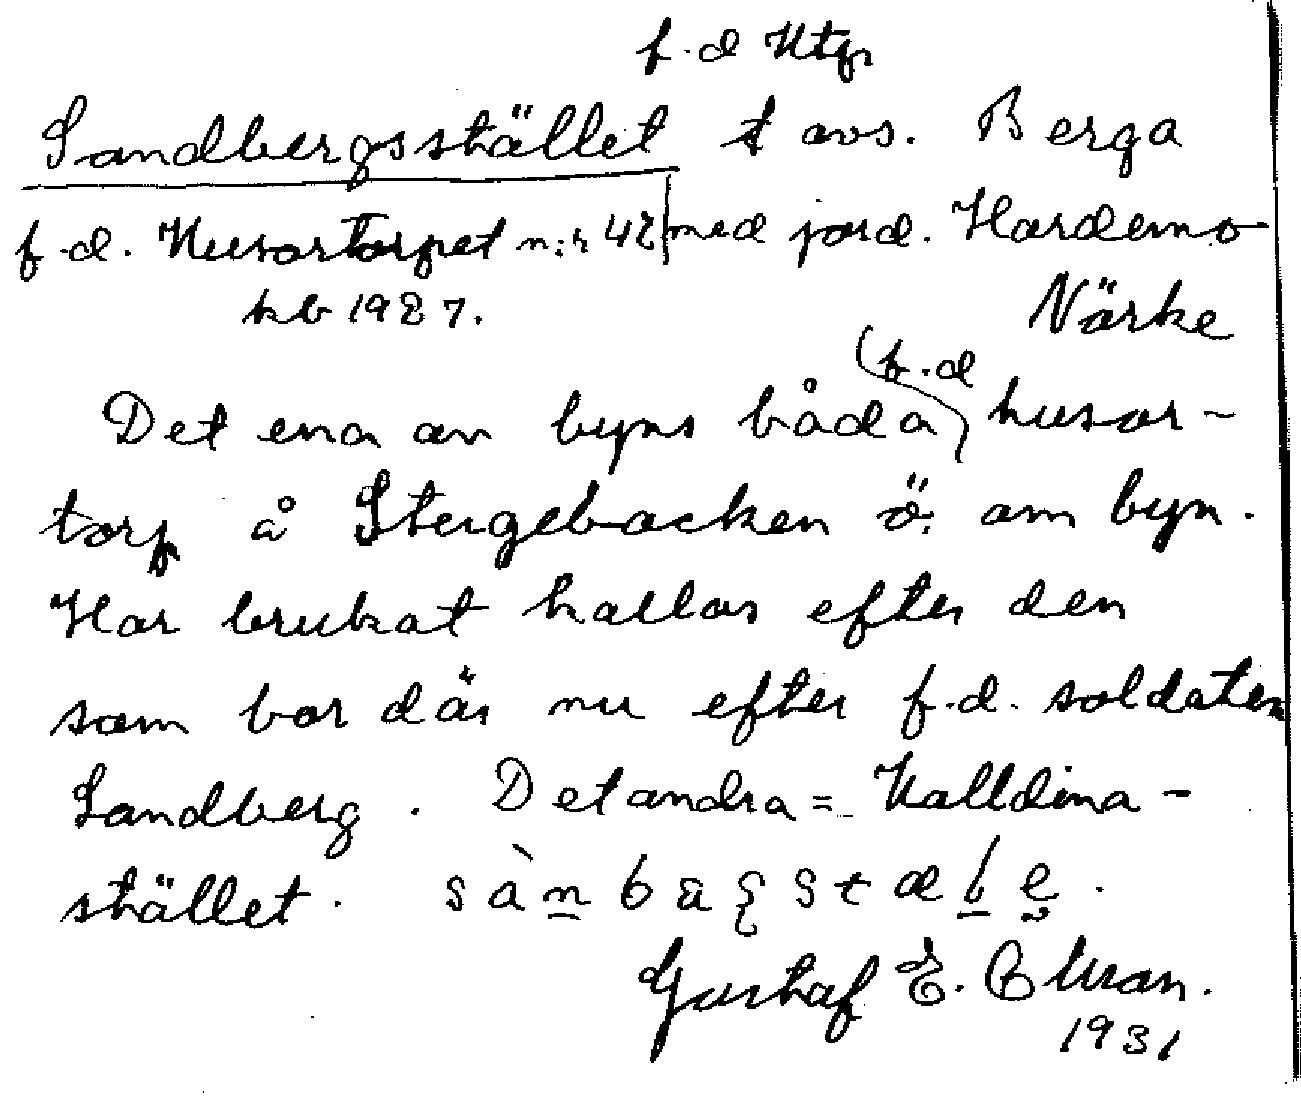 f.d Htp
Sandbergsstället t avs. Berga
f.d. Husartorpet n:r 42 med jord. Hardemo
kb 1927. Närke
Det ena av byns båda f.d husar-
torp å Stergebacken ö. om byn.
Har brukat kallas efter den
som bor där nu efter f.d. soldaten
Sandberg. Det andra = Kalldina-
stället. sànbäʂstæle.
Gustaf E.
1931